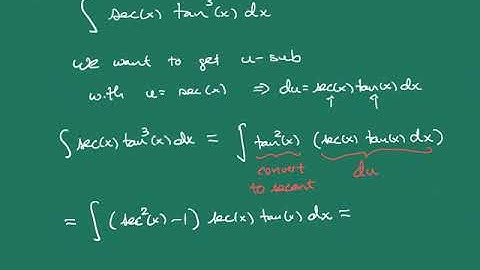 ∫ sec(x) tan³(x) dx
We want to get u-sub
with u = sec(x) ⇒ du = sec(x) tan(x) dx
∫ sec(x) tan³(x) dx = ∫ tan²(x) (sec(x) tan(x) dx)
convert to secant
du
= ∫ (sec²(x) - 1) sec(x) tan(x) dx =